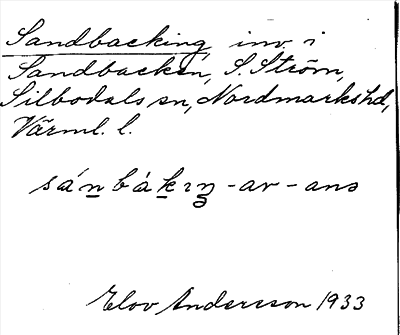 Sandbacking, inv. i
Sandbacken, S. Ström,
Silbodals sn, Nordmarks hd,
Värml. l.
sánbàkıŋ -ar -anə
Elov Andersson 1933